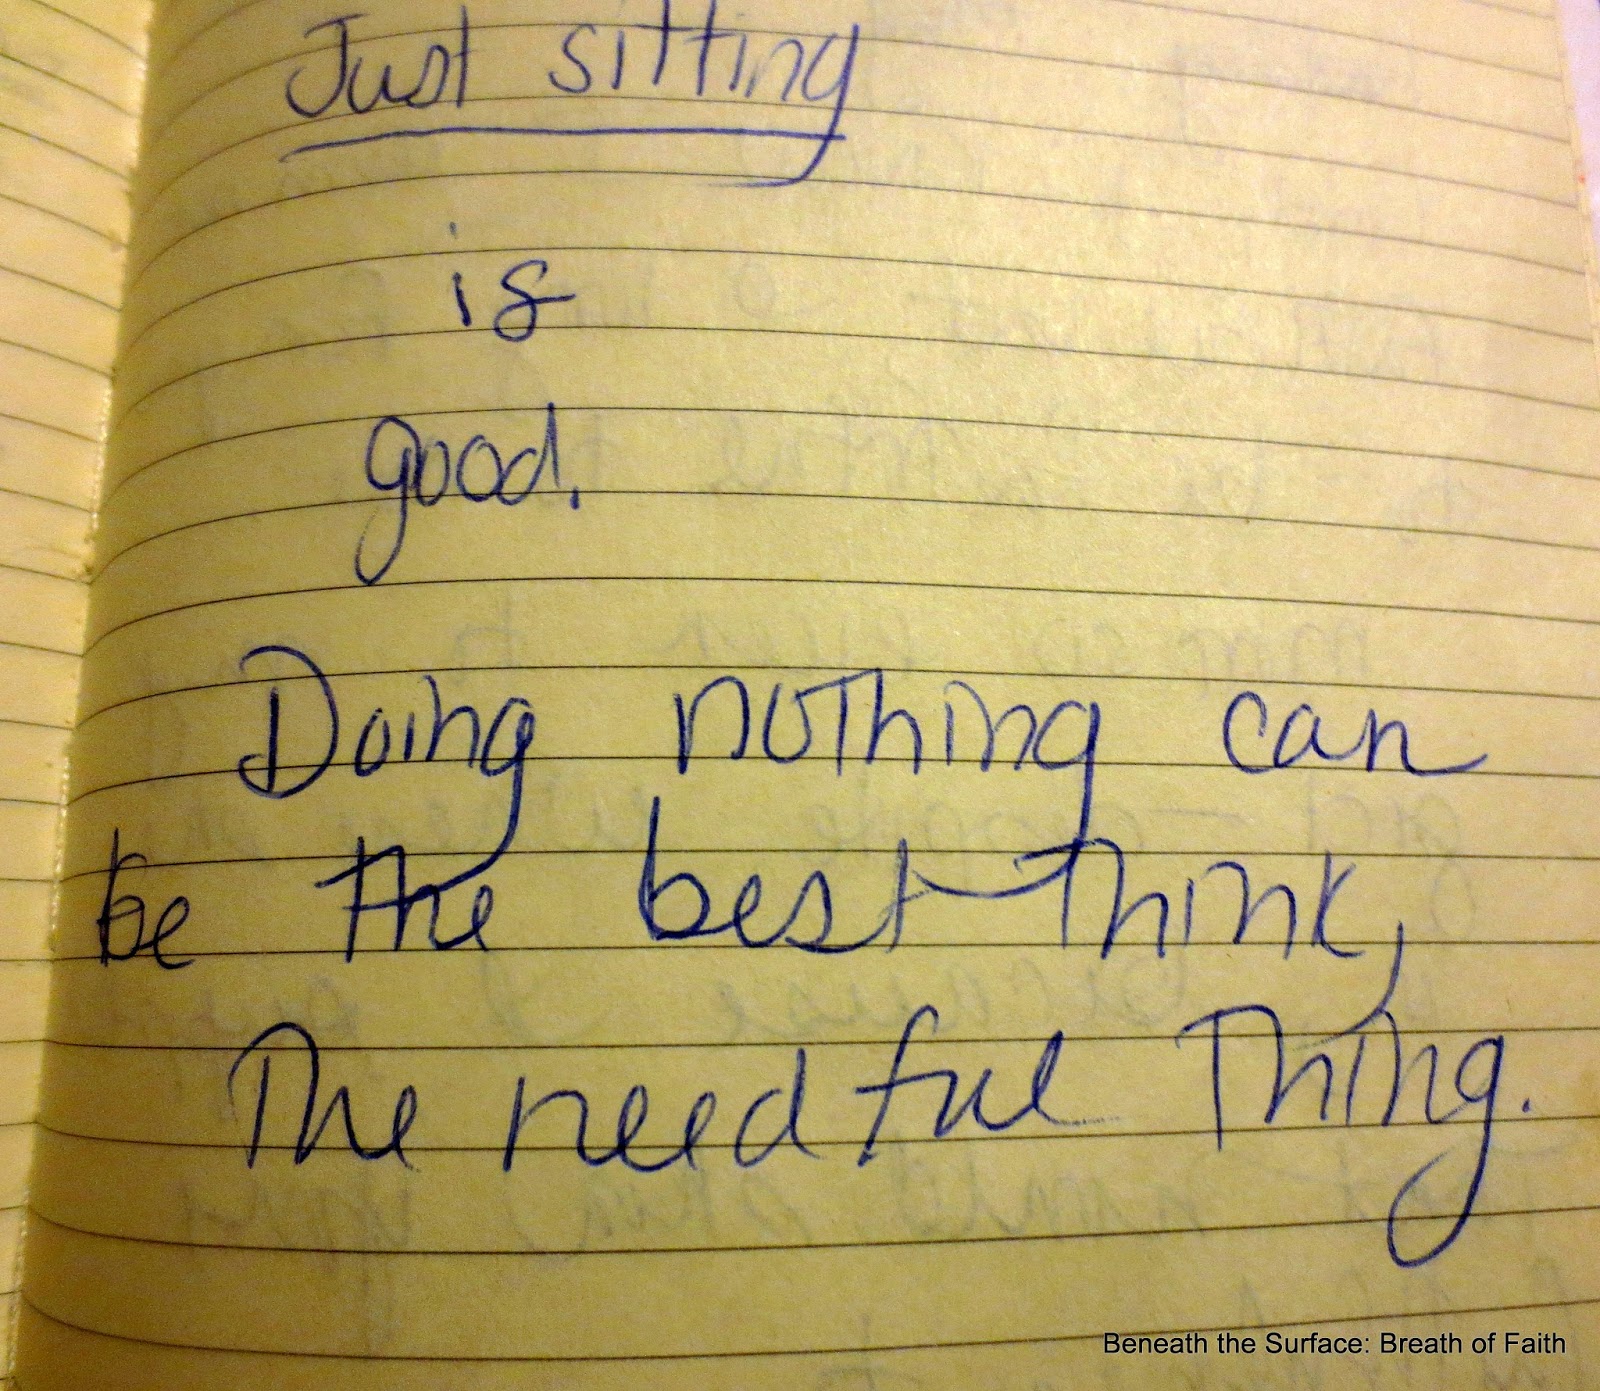 Just sitting
is
good.
Doing nothing can
be the best think,
The needful Thing.
Beneath the Surface: Breath of Faith